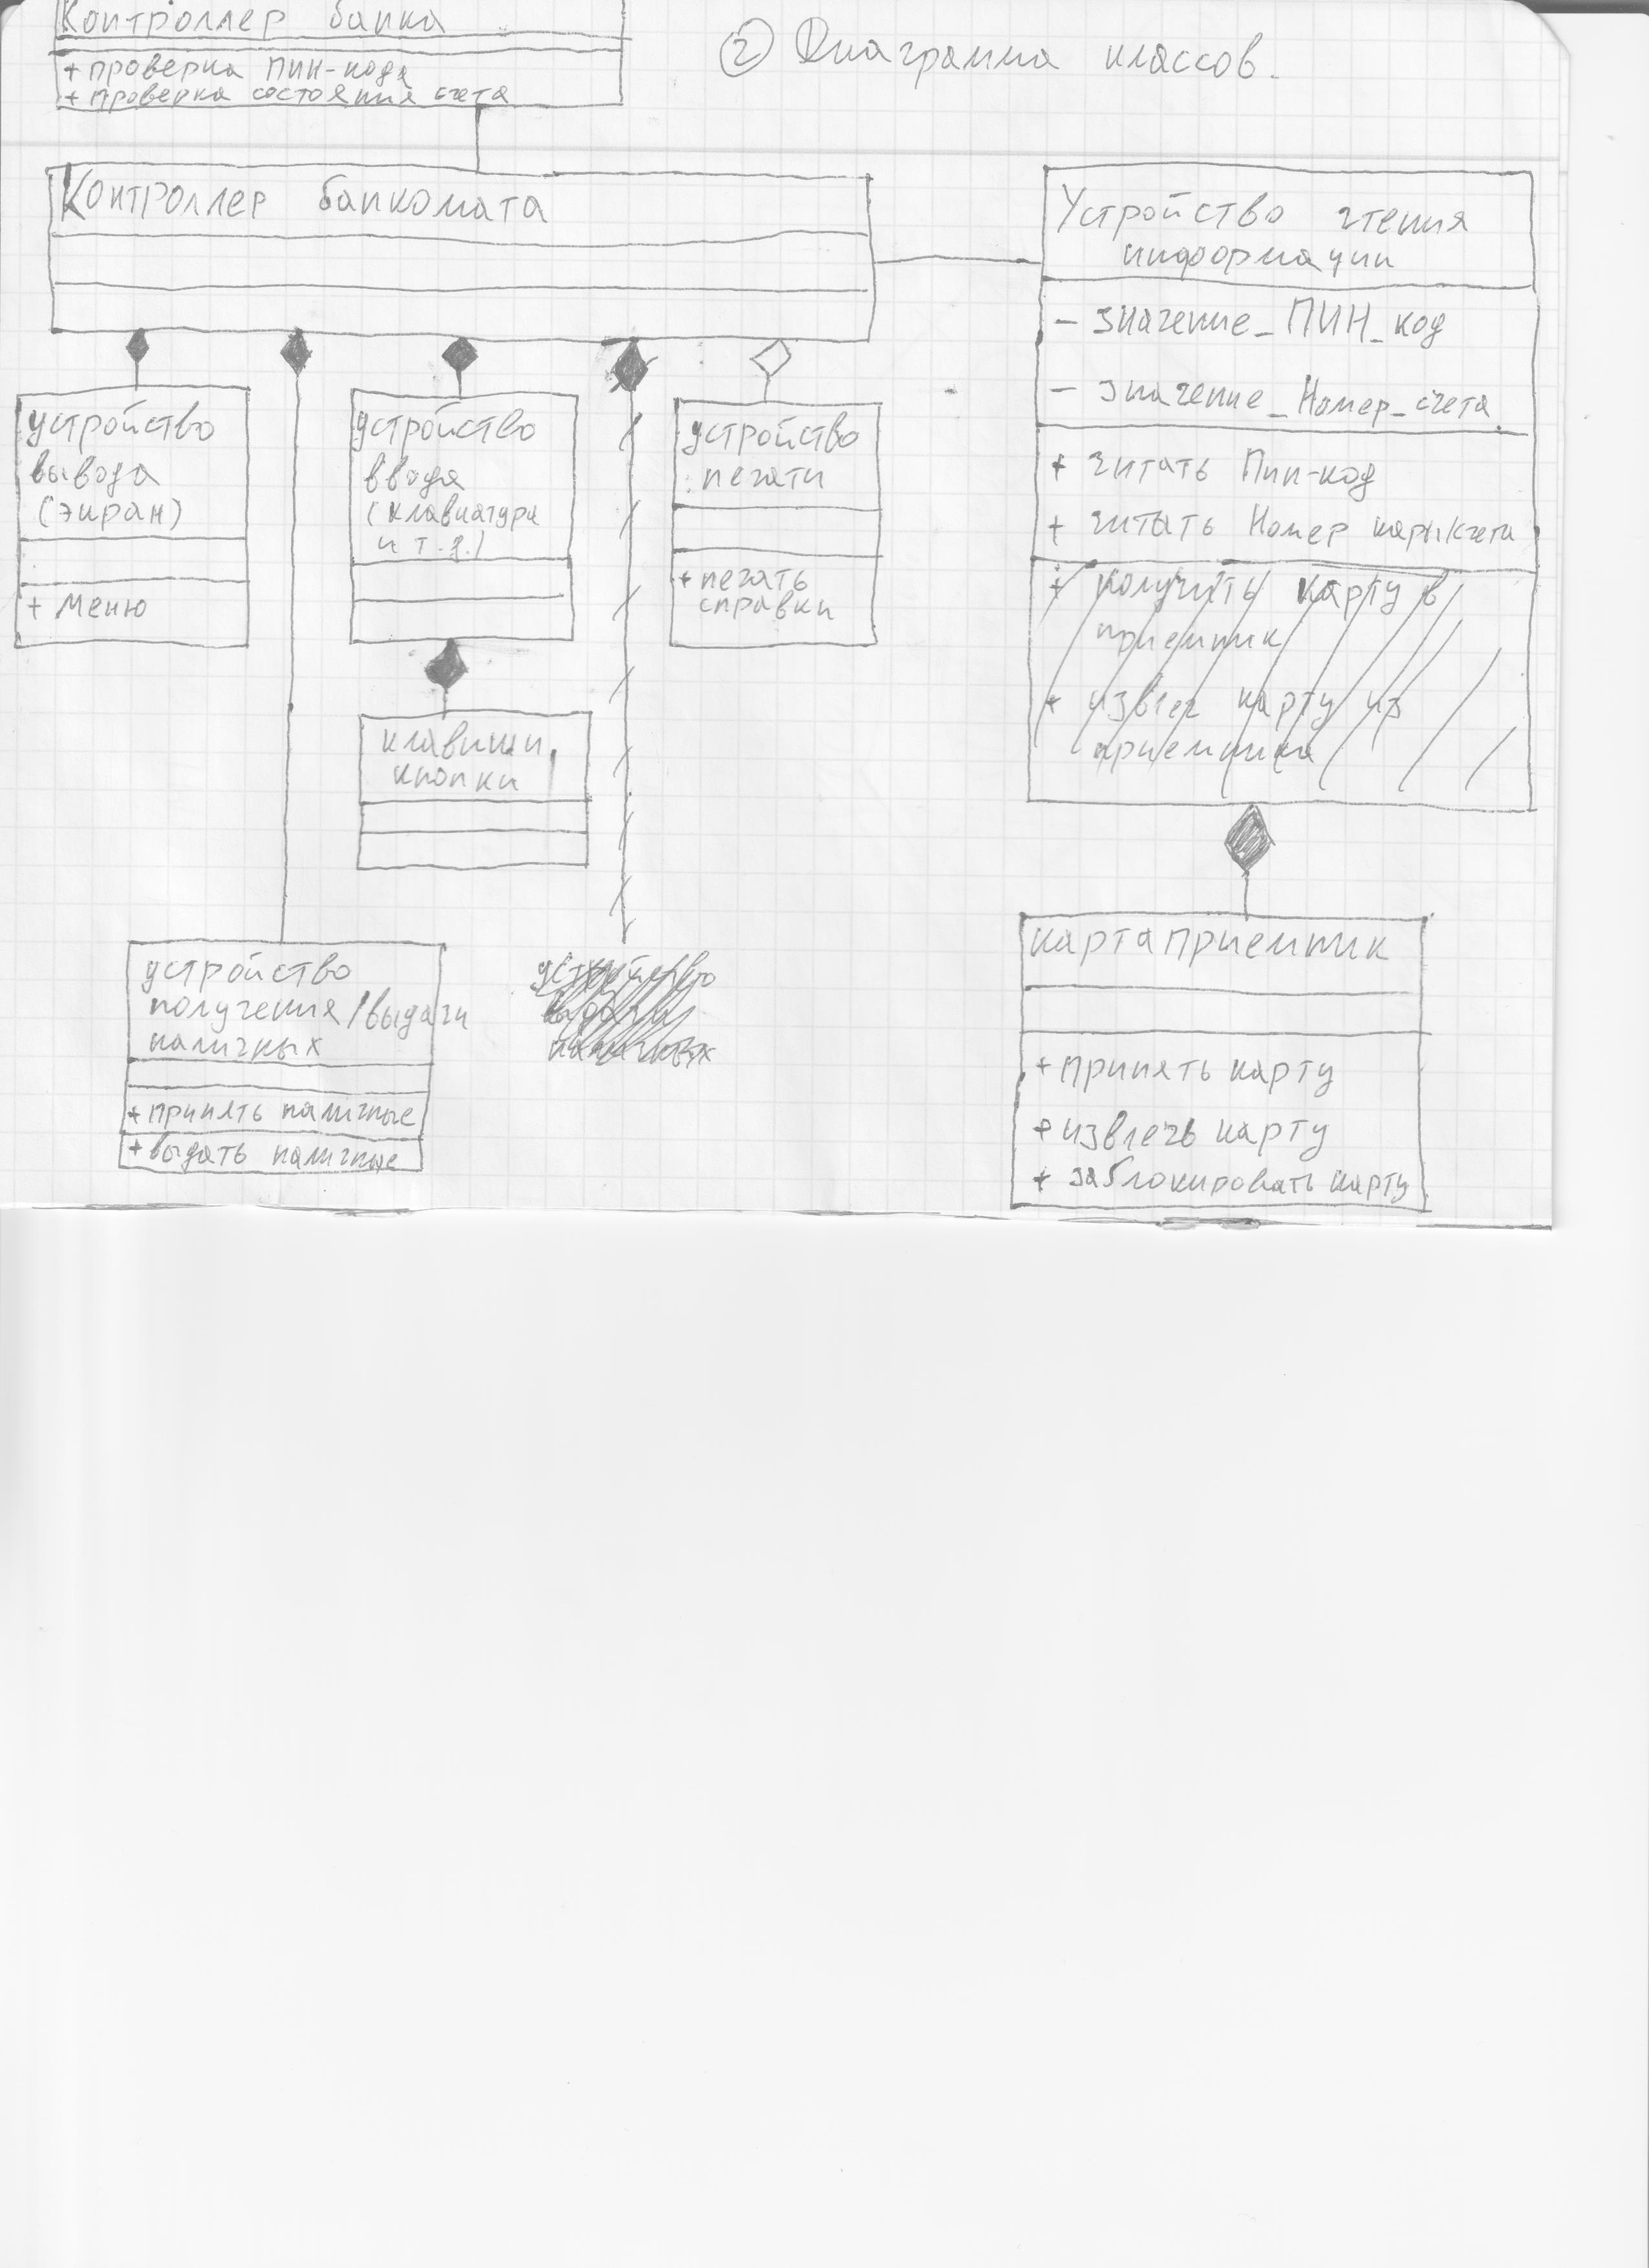 Контроллер банка
+ проверка ПИН-кода
+ проверка состояния счета
② Диаграмма классов.
Контроллер банкомата
Устройство чтения
информации
- значение_ПИН_код
- значение_Номер_счета
+ читать Пин-код
+ читать Номер карты/счета
+ получить карту в
приемник
+ извлеч карту из
приемника
устройство
вывода
(экран)
+ Меню
устройство
ввода
(клавиатура
и т.д.)
устройство
печати
+ печать
справки
клавиши,
кнопки
устройство
получения/выдачи
наличных
+ принять наличные
+ выдать наличные
устройство
выдачи
наличных
картаприемник
+ принять карту
+ извлечь карту
+ заблокировать карту